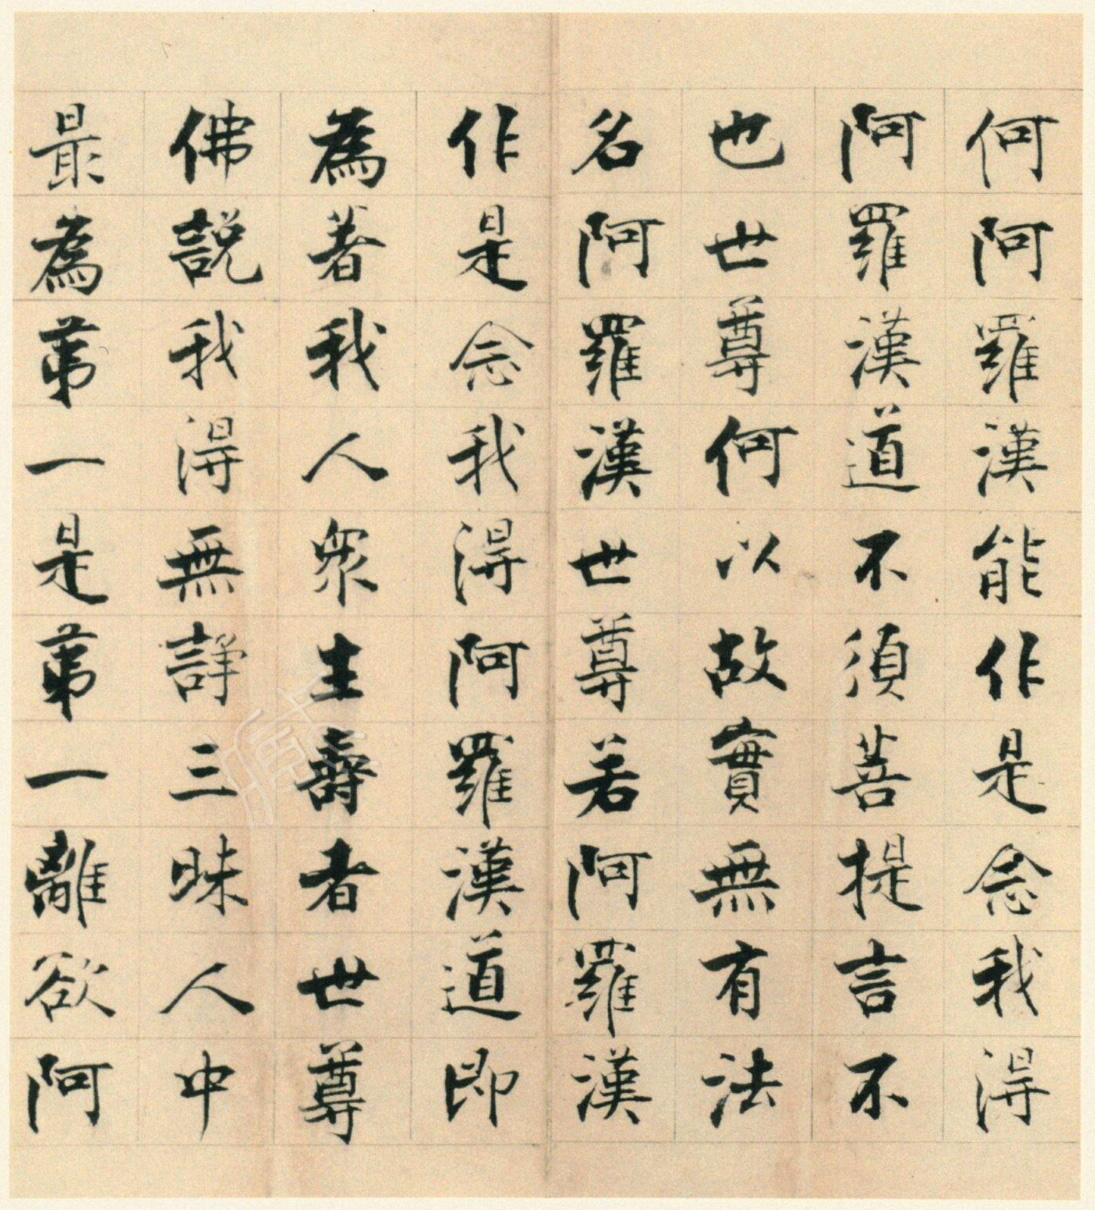 何阿羅漢能作是念我得
阿羅漢道不須菩提言不
也世尊何以故實無有法
名阿羅漢世尊若阿羅漢
作是念我得阿羅漢道即
為著我人眾生壽者世尊
佛說我得無諍三昧人中
最為第一是第一離欲阿